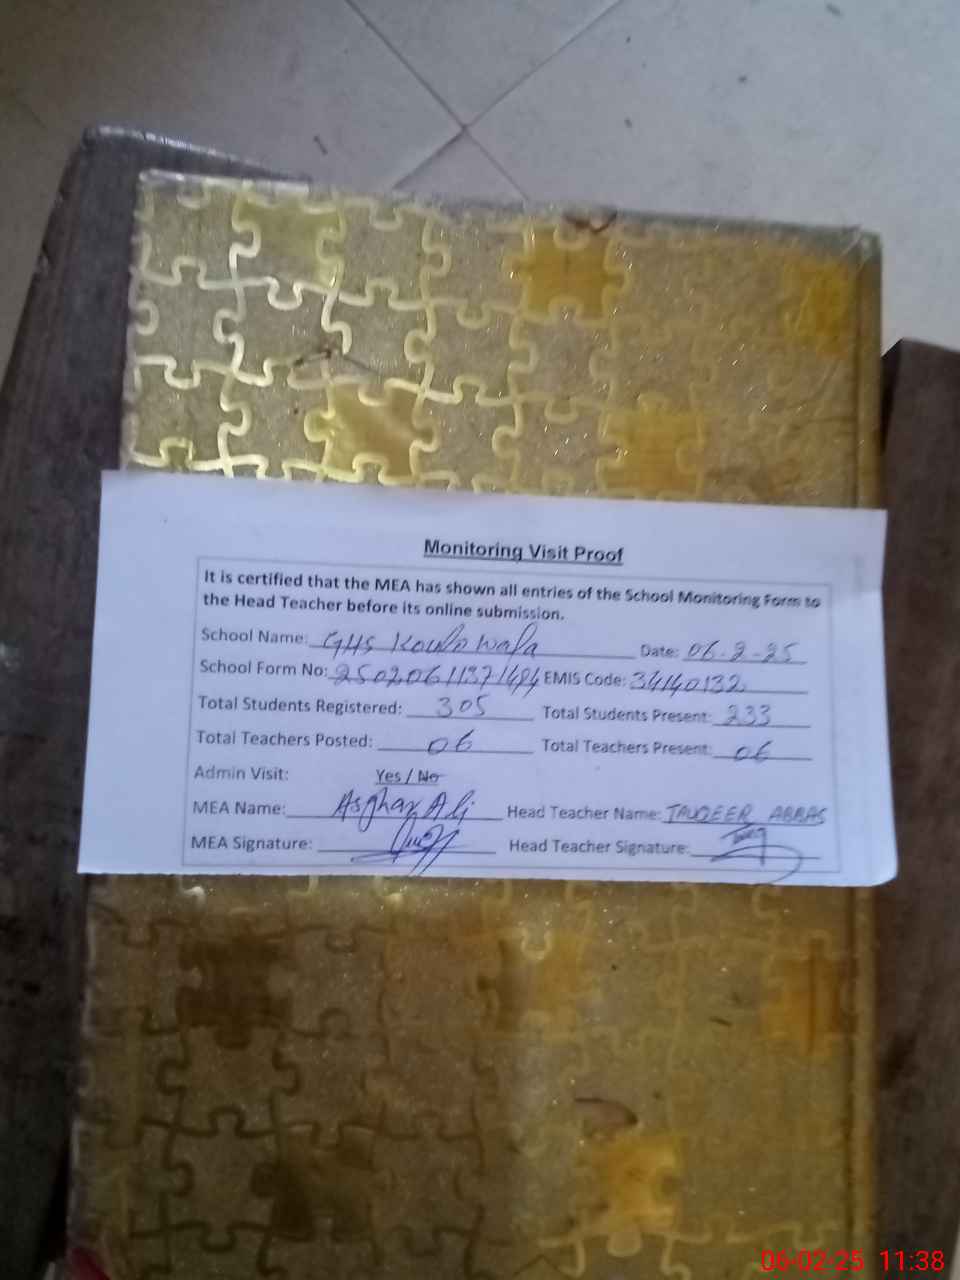 Monitoring Visit Proof
It is certified that the MEA has shown all entries of the School Monitoring Form to
the Head Teacher before its online submission.
School Name: GHS Date: 06-2-25
School Form No: EMIS Code: 34140132
Total Students Registered: 305 Total Students Present: 233
Total Teachers Posted: 06 Total Teachers Present: 06
Admin Visit: Yes / No
MEA Name: Asghar Ali Head Teacher Name: TAUQEER ABBAS
MEA Signature: Head Teacher Signature:
06-02-25 11:38